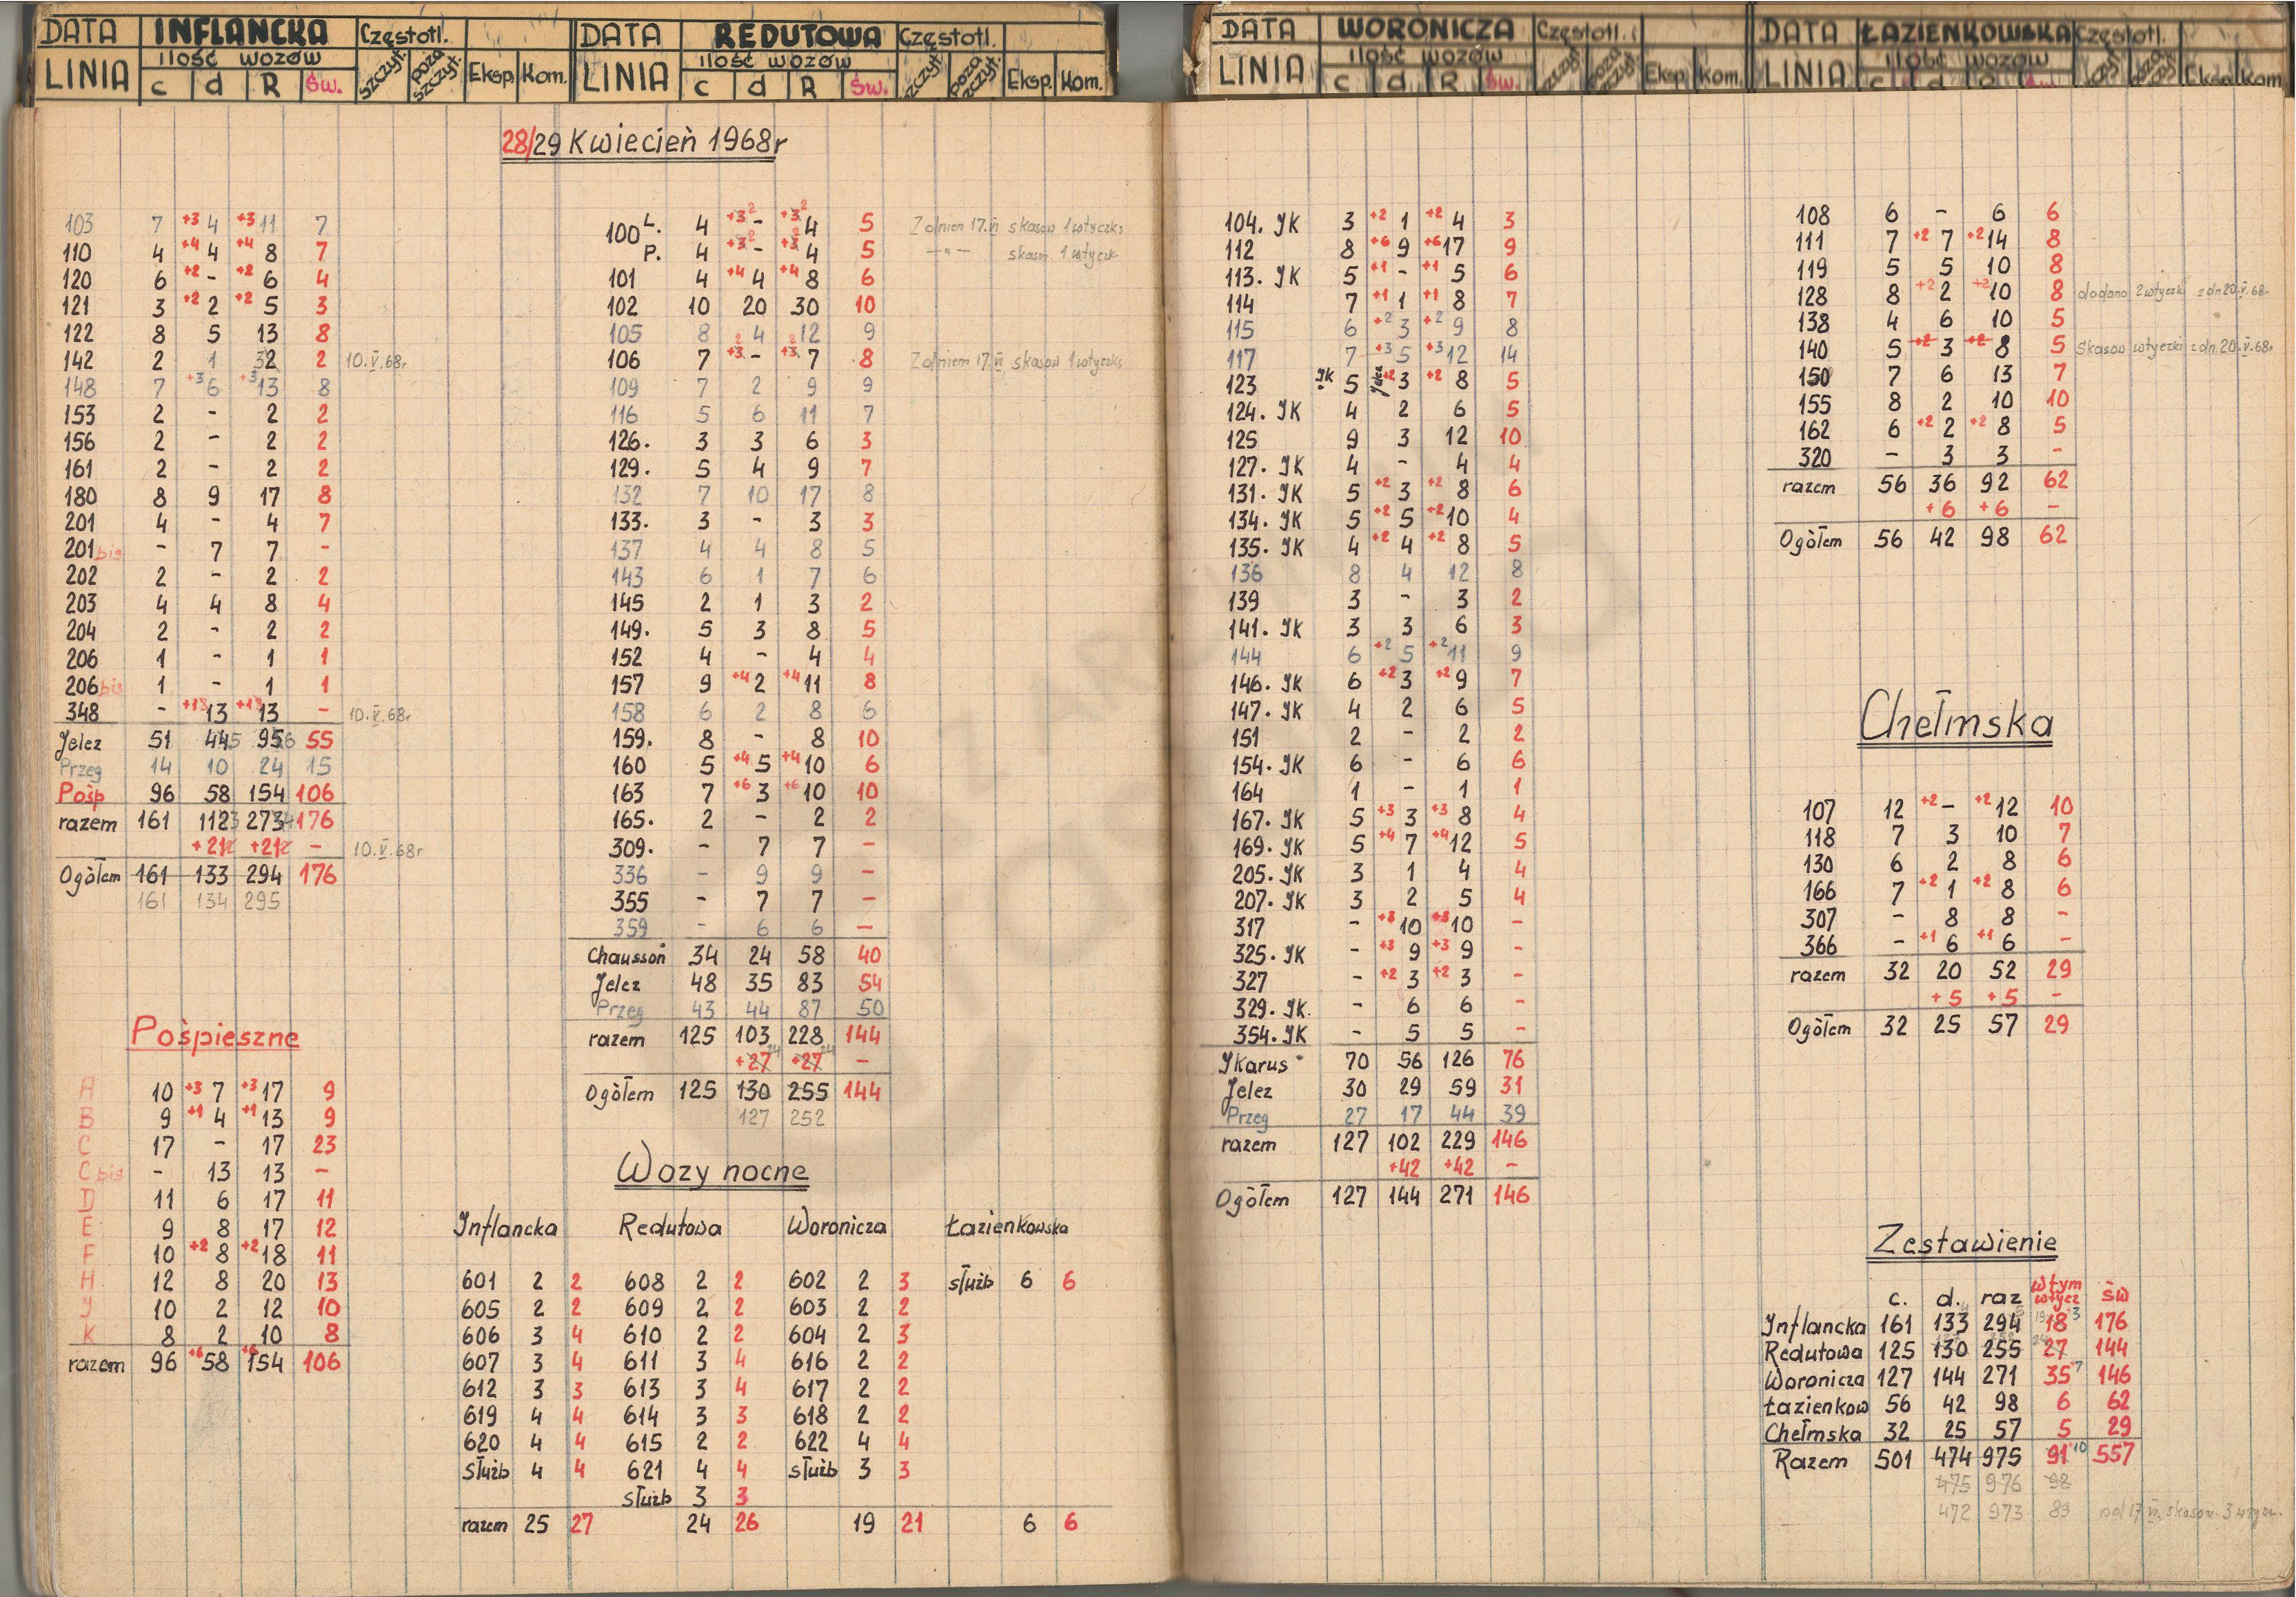 DATA INFLANCKA Częstotl.
LINIA ilość wozów c d R Św. szczyt. poza szczyt. Eksp. Kom.
DATA REDUTOWA Częstotl.
LINIA ilość wozów c d R Św. szczyt. poza szczyt. Eksp. Kom.
DATA WORONICZA Częstotl.
LINIA ilość wozów c d R Św. Eksp. Kom.
DATA ŁAZIENKOWSKA Częstotl.
LINIA ilość wozów c d R Św. Eksp. Kom.
28/29 Kwiecień 1968r
103 7 +3 4 +3 11 7
110 4 +4 4 +4 8 7
120 6 +2 - +2 6 4
121 3 +2 2 +2 5 3
122 8 5 13 8
142 2 1 32 2 10.V.68r
148 7 +3 6 +3 13 8
153 2 - 2 2
156 2 - 2 2
161 2 - 2 2
180 8 9 17 8
201 4 - 4 7
201 bis - 7 7 -
202 2 - 2 2
203 4 4 8 4
204 2 - 2 2
206 1 - 1 1
206 bis 1 - 1 1
348 - 13 13 - 10.V.68r
Jelcz 51 445 956 55
Przeg 14 10 24 15
Pośp 96 58 154 106
razem 161 1123 2734 176
+21 +21 - 10.V.68r
Ogółem 161 133 294 176
161 134 295
Pośpieszne
A 10 +3 7 +3 17 9
B 9 +1 4 +1 13 9
C 17 - 17 23
C bis - 13 13 -
D 11 6 17 11
E 9 8 17 12
F 10 +2 8 +2 18 11
H 12 8 20 13
Y 10 2 12 10
K 8 2 10 8
razem 96 +6 58 +6 154 106
100 L. 4 +3 2 - +3 2 4 5 Z dniem 17.VI skasow 1 wtyczkę
P. 4 +3 2 - +3 2 4 5 -"- skasow 1 wtyczk
101 4 +4 4 +4 8 6
102 10 20 30 10
105 8 4 12 9
106 7 +3 2 - +3 2 7 8 Z dniem 17.VI skasow 1 wtyczkę
109 7 2 9 9
116 5 6 11 7
126. 3 3 6 3
129. 5 4 9 7
132 7 10 17 8
133. 3 - 3 3
137 4 4 8 5
143 6 1 7 6
145 2 1 3 2
149. 5 3 8 5
152 4 - 4 4
157 9 +4 2 +4 11 8
158 6 2 8 6
159. 8 - 8 10
160 5 +4 5 +4 10 6
163 7 +6 3 +6 10 10
165. 2 - 2 2
309. - 7 7 -
336 - 9 9 -
355 - 7 7 -
359 - 6 6 -
Chausson 34 24 58 40
Jelcz 48 35 83 54
Przeg 43 44 87 50
razem 125 103 228 144
+27 24 +27 24 -
Ogółem 125 130 255 144
127 252
Wozy nocne
Inflancka Redutowa Woronicza Łazienkowska
601 2 2 608 2 2 602 2 3 służb 6 6
605 2 2 609 2 2 603 2 2
606 3 4 610 2 2 604 2 3
607 3 4 611 3 4 616 2 2
612 3 3 613 3 4 617 2 2
619 4 4 614 3 3 618 2 2
620 4 4 615 2 2 622 4 4
służb 4 4 621 4 4 służb 3 3
służb 3 3
razem 25 27 24 26 19 21 6 6
104. JK 3 +2 1 +2 4 3
112 8 +6 9 +6 17 9
113. JK 5 +1 - +1 5 6
114 7 +1 1 +1 8 7
115 6 +2 3 +2 9 8
117 7 +3 5 +3 12 14
123 JK 5 Jelcz +2 3 +2 8 5
124. JK 4 2 6 5
125 9 3 12 10
127. JK 4 - 4 4
131. JK 5 +2 3 +2 8 6
134. JK 5 +2 5 +2 10 4
135. JK 4 +2 4 +2 8 5
136 8 4 12 8
139 3 - 3 2
141. JK 3 3 6 3
144 6 +2 5 +2 11 9
146. JK 6 +2 3 +2 9 7
147. JK 4 2 6 5
151 2 - 2 2
154. JK 6 - 6 6
164 1 - 1 1
167. JK 5 +3 3 +3 8 4
169. JK 5 +4 7 +4 12 5
205. JK 3 1 4 4
207. JK 3 2 5 4
317 - +3 10 +3 10 -
325. JK - +3 9 +3 9 -
327 - +2 3 +2 3 -
329. JK. - 6 6 -
354. JK - 5 5 -
Ykarus 70 56 126 76
Jelcz 30 29 59 31
Przeg 27 17 44 39
razem 127 102 229 146
+42 +42 -
Ogółem 127 144 271 146
108 6 - 6 6
111 7 +2 7 +2 14 8
119 5 5 10 8
128 8 +2 2 +2 10 8 dodano 2 wtyczki z dn 20.V.68r
138 4 6 10 5
140 5 +2 3 +2 8 5 Skasow wtyczki z dn. 20.V.68r
150 7 6 13 7
155 8 2 10 10
162 6 +2 2 +2 8 5
320 - 3 3 -
razem 56 36 92 62
+6 +6 -
Ogółem 56 42 98 62
Chełmska
107 12 +2 - +2 12 10
118 7 3 10 7
130 6 2 8 6
166 7 +2 1 +2 8 6
307 - 8 8 -
366 - +1 6 +1 6 -
razem 32 20 52 29
+5 +5 -
Ogółem 32 25 57 29
Zestawienie
c. d. raz wtym wtycz św
Inflancka 161 133 294 18 +3 176
Redutowa 125 130 255 27 144
Woronicza 127 144 271 35 +7 146
Łazienkow 56 42 98 6 62
Chełmska 32 25 57 5 29
Razem 501 474 975 91 +10 557
475 976 92
472 973 89 od 17 VI. skasow. 3 wtycz.